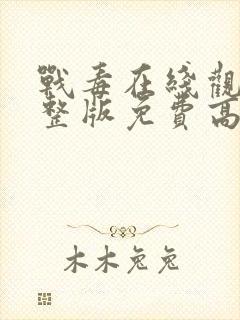 戰毒在綫觀
整版免費高
木木兔兔